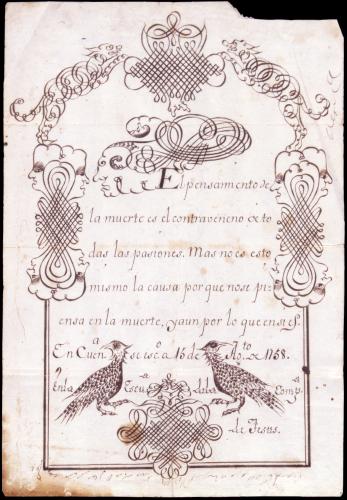 El pensamiento de
la muerte es el contraveneno de to
das las pasiones. Mas no es esto
mismo la causa por que no se pi
ensa en la muerte, y aun por lo que en si es.
En Cuenca se esco a 15 de Agto de 1758.
En la Escua de la Compa
de Jesus.